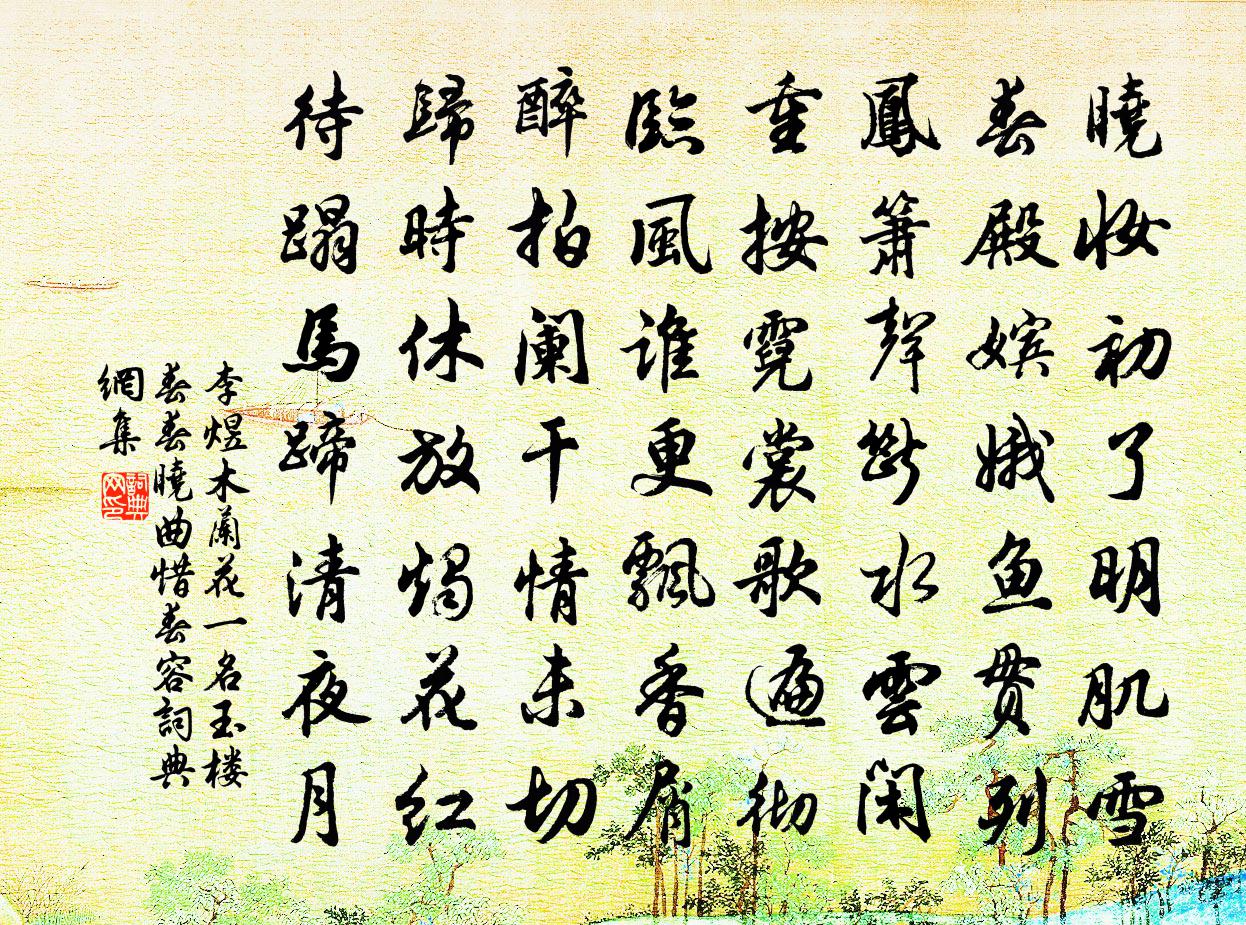 曉妆初了明肌雪
春殿嫔娥鱼贯列
鳳箫聲斷水雲閑
重按霓裳歌遍彻
臨風谁更飄香屑
醉拍阑干情未切
歸時休放燭花红
待蹋馬蹄清夜月
李煜木蘭花一名玉楼
春春曉曲惜春容詞典
網集
詞典
网印